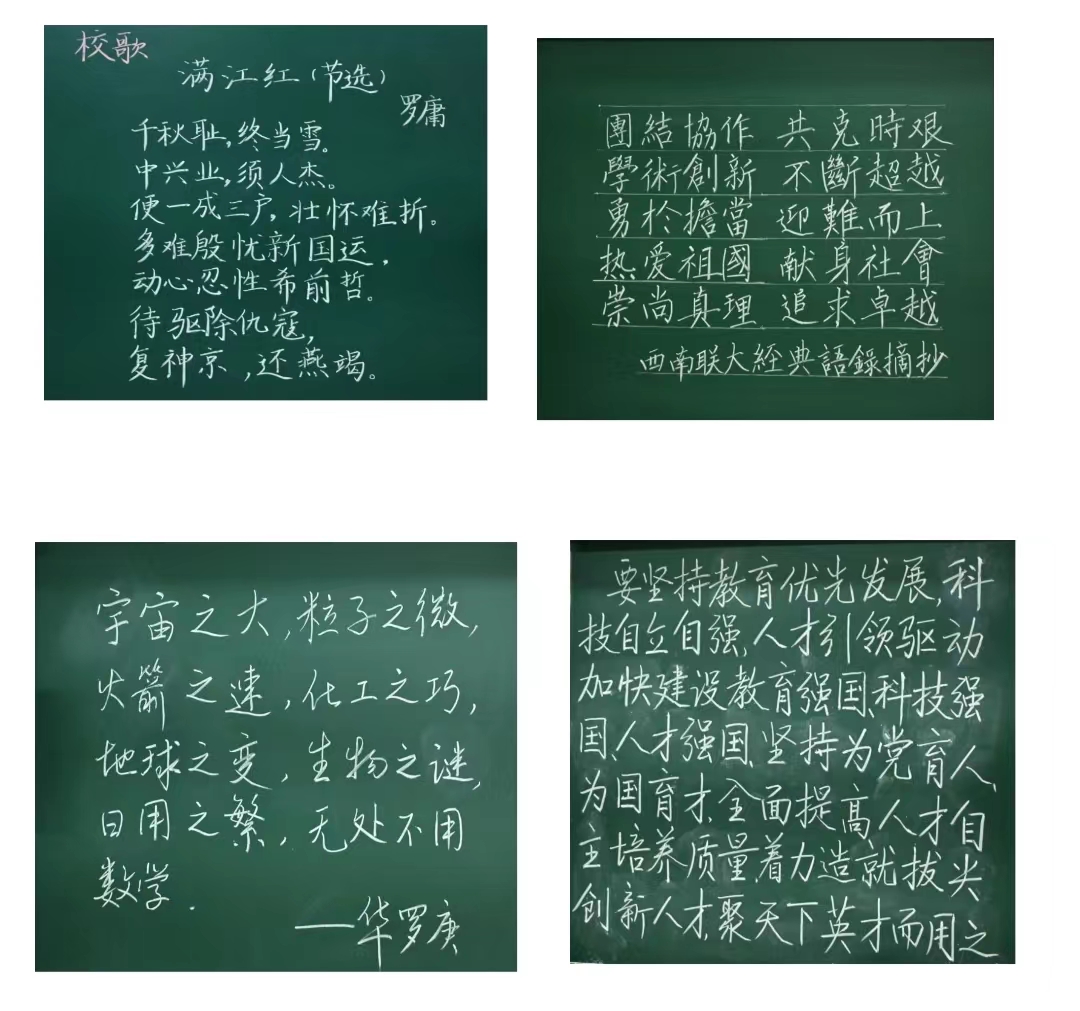 校歌
满江红(节选)
罗庸
千秋耻,终当雪。
中兴业,须人杰。
便一成三户,壮怀难折。
多难殷忧新国运,
动心忍性希前哲。
待驱除仇寇,
复神京,还燕竭。
團結協作 共克時艰
學術創新 不斷超越
勇於擔當 迎難而上
热爱祖國 献身社會
崇尚真理 追求卓越
西南联大經典語録摘抄
宇宙之大,粒子之微,
火箭之速,化工之巧,
地球之变,生物之谜,
日用之繁,无处不用
数学.
——华罗庚
要坚持教育优先发展,科
技自立自强,人才引领驱动
加快建设教育强国、科技强
国、人才强国、坚持为党育人、
为国育才,全面提高人才自
主培养质量,着力造就拔尖
创新人才,聚天下英才而用之